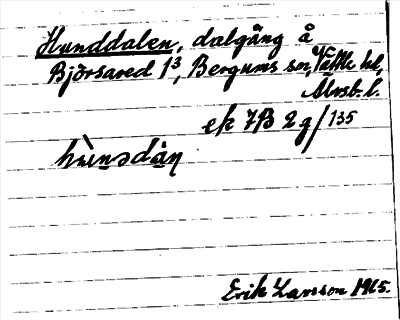 Hunddalen, dalgång å
Björsared 1³, Bergums sn, Vättle hd,
Älvsb. l.
ek 7B 2g/135
hùnədàn
Erik Larsson 1965.